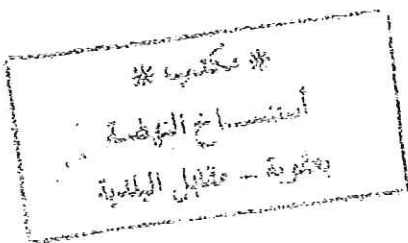 * مكتب *
أستنساخ النهضة
بعقوبة - مقابل البلدية